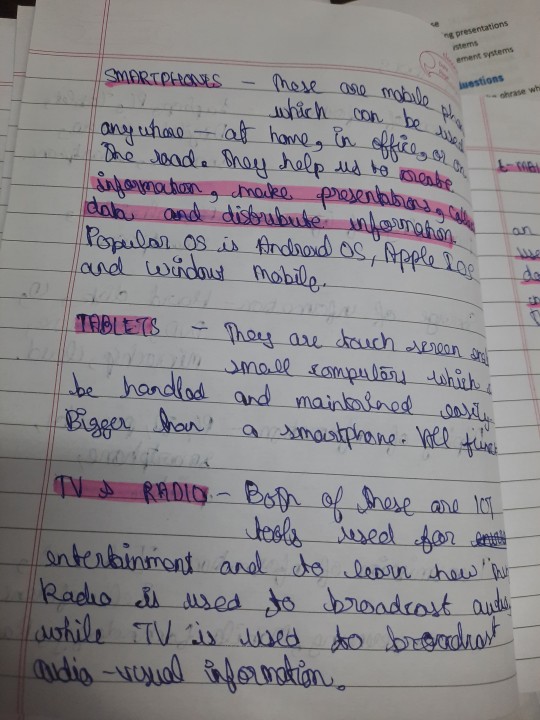 SMARTPHONES - These are mobile
which can be used
anywhere - at home, in office, or on
the road. They help us to create
information, make presentations,
data and distribute information
Popular OS is Android OS, Apple IOS
and Windows Mobile.
TABLETS - They are touch screen
small computers which
be handled and maintained easily
Bigger than a smartphone. All
TV & RADIO - Both of these are ICT
tools used for
entertainment and to learn new
Radio is used to broadcast
while TV is used to broadcast
audio-visual information.
ng presentations
ement systems
uestions